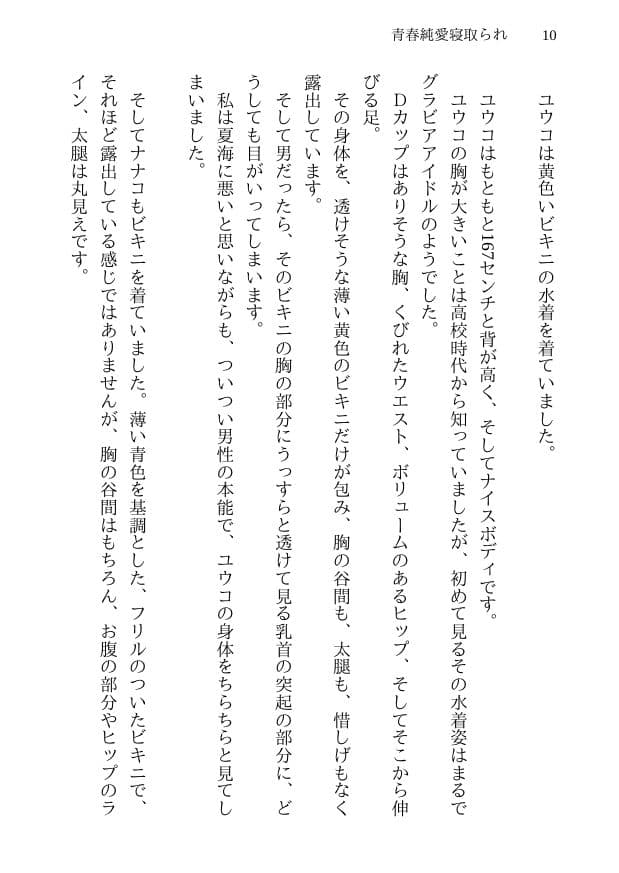 青春純愛寝取られ 10
ユウコは黄色いビキニの水着を着ていました。
ユウコはもともと167センチと背が高く、そしてナイスボディです。
ユウコの胸が大きいことは高校時代から知っていましたが、初めて見るその水着姿はまるで
グラビアアイドルのようでした。
Dカップはありそうな胸、くびれたウエスト、ボリュームのあるヒップ、そしてそこから伸
びる足。
その身体を、透けそうな薄い黄色のビキニだけが包み、胸の谷間も、太腿も、惜しげもなく
露出しています。
そして男だったら、そのビキニの胸の部分にうっすらと透けて見る乳首の突起の部分に、ど
うしても目がいってしまいます。
私は夏海に悪いと思いながらも、ついつい男性の本能で、ユウコの身体をちらちらと見てし
まいました。
そしてナナコもビキニを着ていました。薄い青色を基調とした、フリルのついたビキニで、
それほど露出している感じではありませんが、胸の谷間はもちろん、お腹の部分やヒップのラ
イン、太腿は丸見えです。